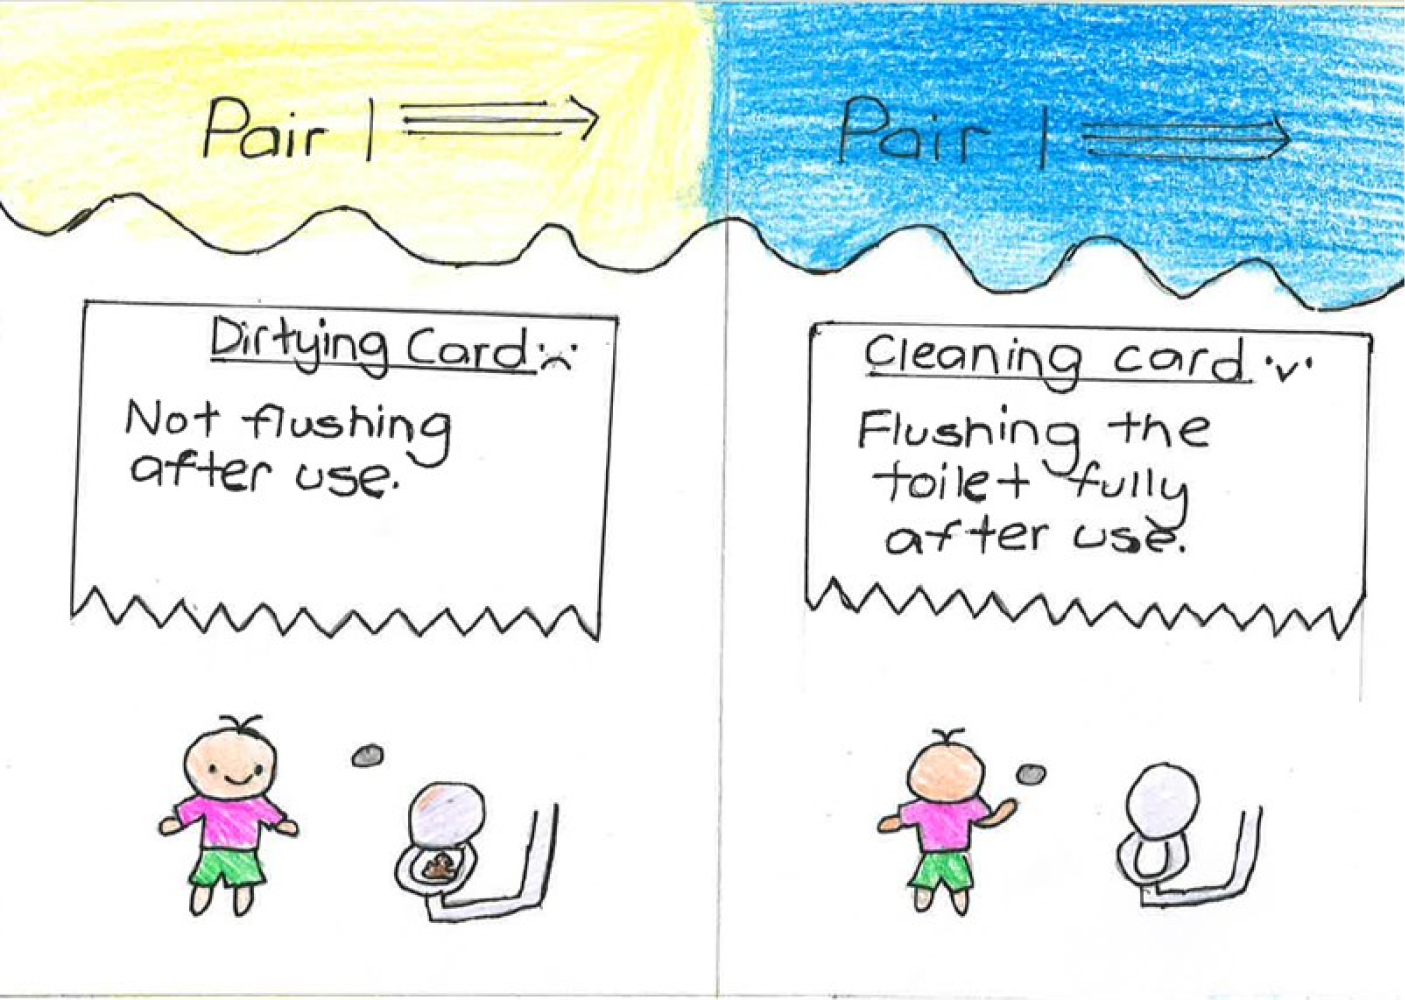 Pair 1
Dirtying Card
Not flushing
after use.
Pair 1
Cleaning card
Flushing the
toilet fully
after use.